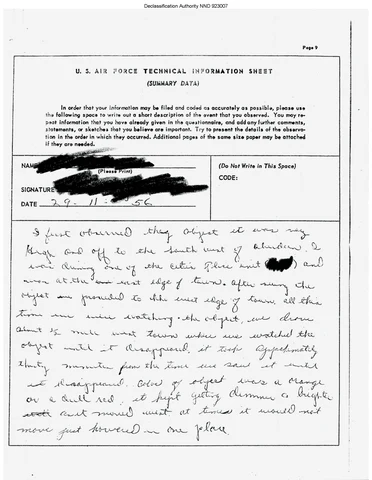 Declassification Authority NND 923007
Page 9
U. S. AIR FORCE TECHNICAL INFORMATION SHEET
(SUMMARY DATA)
In order that your information may be filed and coded as accurately as possible, please use
the following space to write out a short description of the event that you observed. You may re-
peat information that you have already given in the questionnaire, and add any further comments,
statements, or sketches that you believe are important. Try to present the details of the observa-
tion in the order in which they occurred. Additional pages of the same size paper may be attached
if they are needed.
NAME
(Please Print)
SIGNATURE
DATE 29 - 11 - 56
(Do Not Write in This Space)
CODE:
I first observed the object it was very
high and off to the south west of Aberdeen. I
was driving one of the cities Police unit and
was at the east edge of town. After seeing the
object we proceeded to the west edge of town all the
time we were watching the object, we drove
about ½ mile west town where we watched the
object until it disappeared. it took approximately
thirty minutes from the time we saw it until
it disappeared. Color of object was a orange
or a dull red, it kept getting dimmer or brighter
and moved west at times it would not
move just hovered in one place